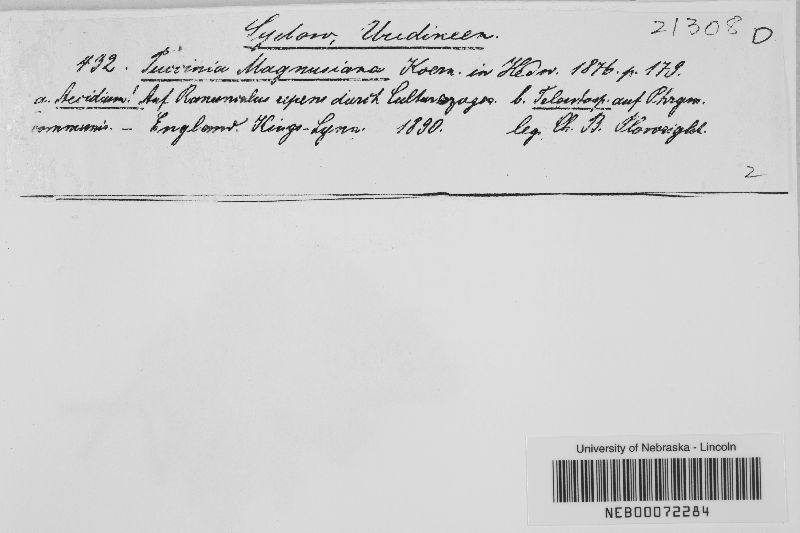 Sydow, Uredineen.
21308 D
432. Puccinia Magnusiana Koern. in Hedw. 1876. p. 179.
a. Aecidium! Auf Ranunculus repens durch Cultur gezogen b. Teleutosp. auf Phrgm.
communis. – England. Kings-Lynn. 1890. leg. Ch. B. Plowright.
2
University of Nebraska - Lincoln
NEB00072284